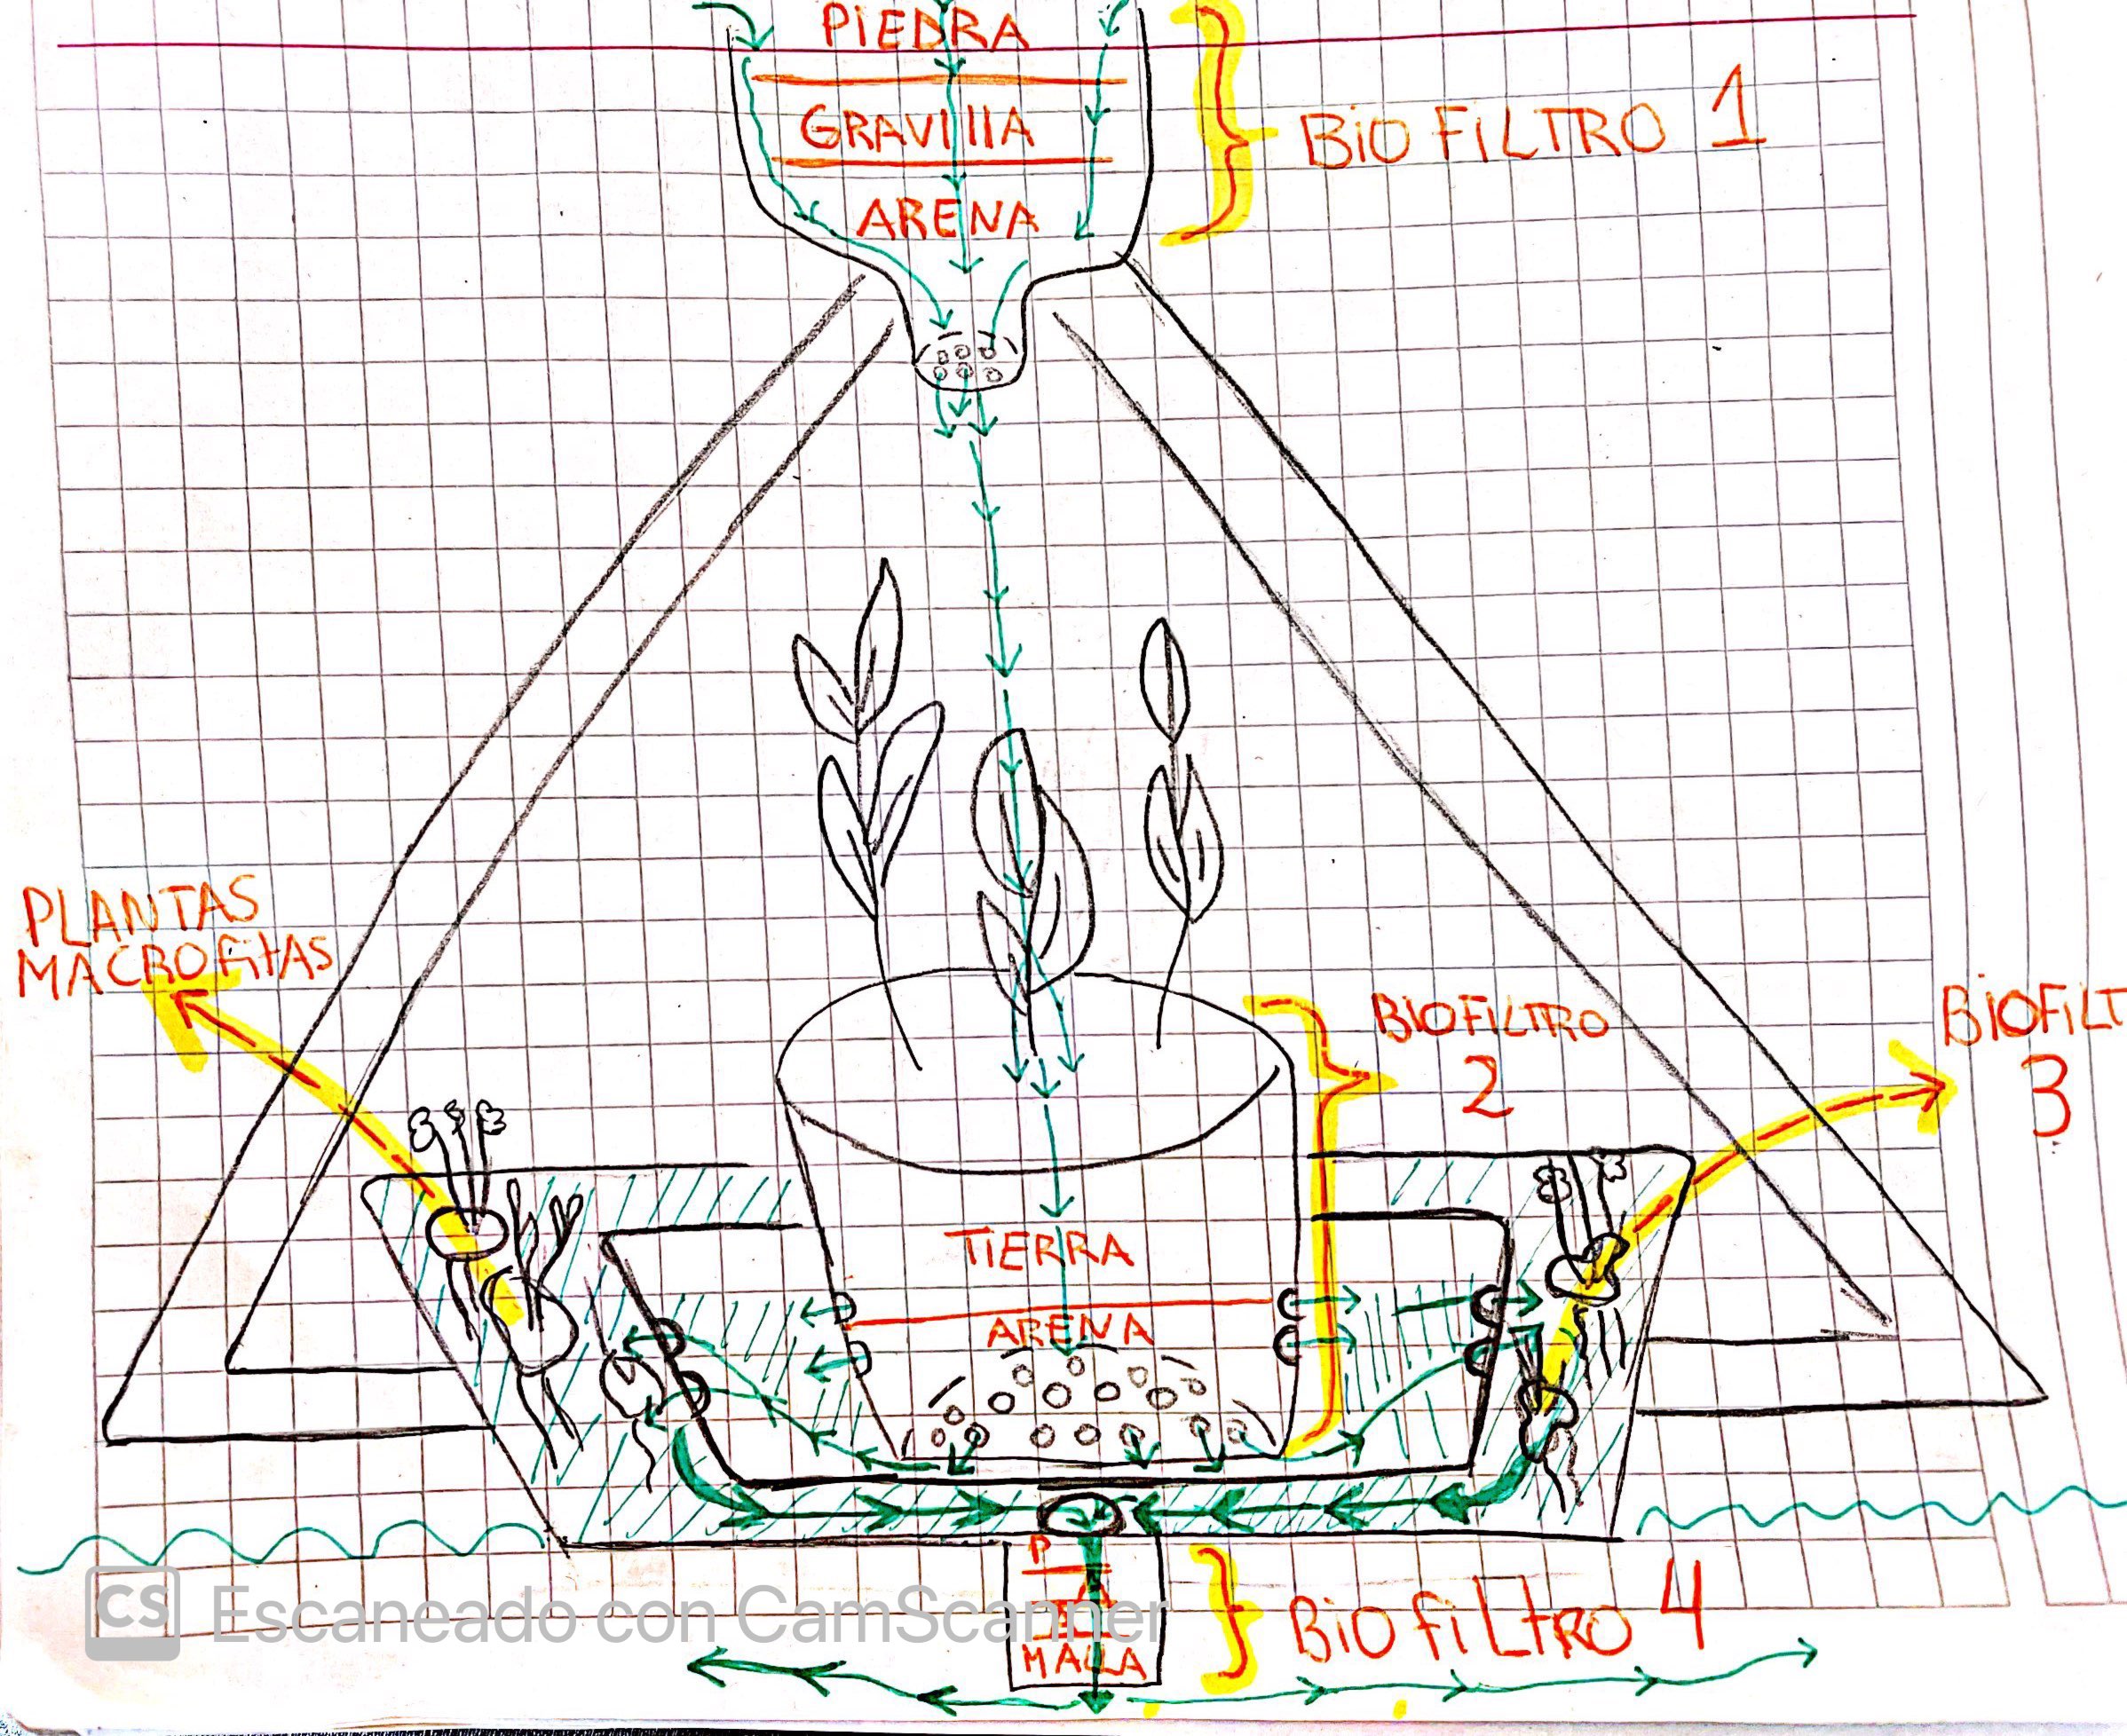 PIEDRA
GRAVIllA
ARENA
BIO FILTRO 1
PLANTAS
MACROfitAS
BIOFILTRO
2
BIOFILT
3
TIERRA
ARENA
P
MALLA
BIO fiLtRO 4
CS Escaneado con CamScanner